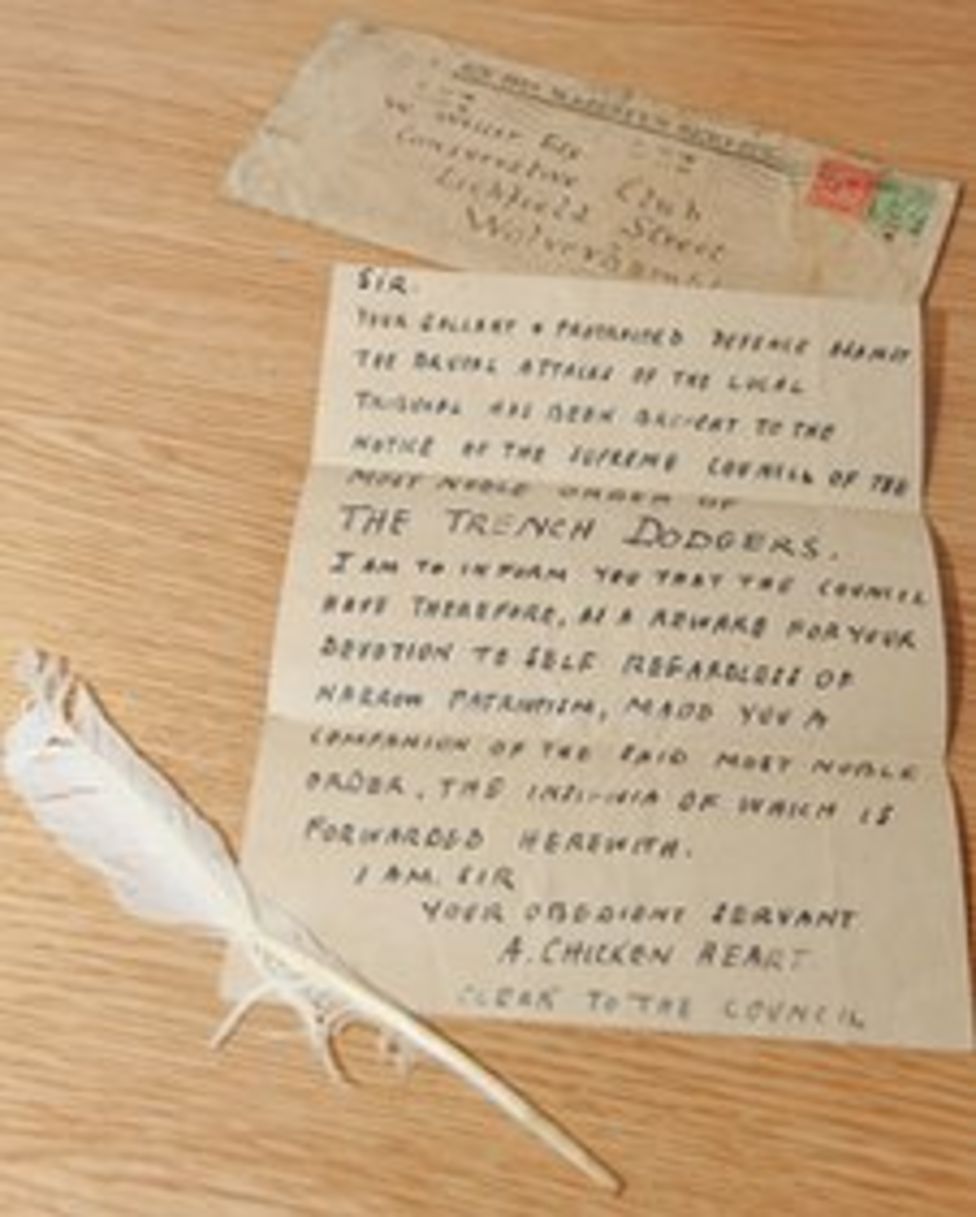 ON HIS MAJESTY'S SERVICE
W. Esq
Conservative Club
Lichfield Street
SIR.
YOUR GALLANT & PROTRACTED DEFENCE AGAINST
THE BRUTAL ATTACKS OF THE LOCAL
TRIBUNAL HAS BEEN BROUGHT TO THE
NOTICE OF THE SUPREME COUNCIL OF THE
MOST NOBLE ORDER OF
THE TRENCH DODGERS.
I AM TO INFORM YOU THAT THE COUNCIL
HAVE THEREFORE, AS A REWARD FOR YOUR
DEVOTION TO SELF REGARDLESS OF
NARROW PATRIOTISM, MADE YOU A
COMPANION OF THE SAID MOST NOBLE
ORDER, THE INSIGNIA OF WHICH IS
FORWARDED HEREWITH.
I AM. SIR
YOUR OBEDIENT SERVANT
A. CHICKEN HEART.
CLERK TO THE COUNCIL